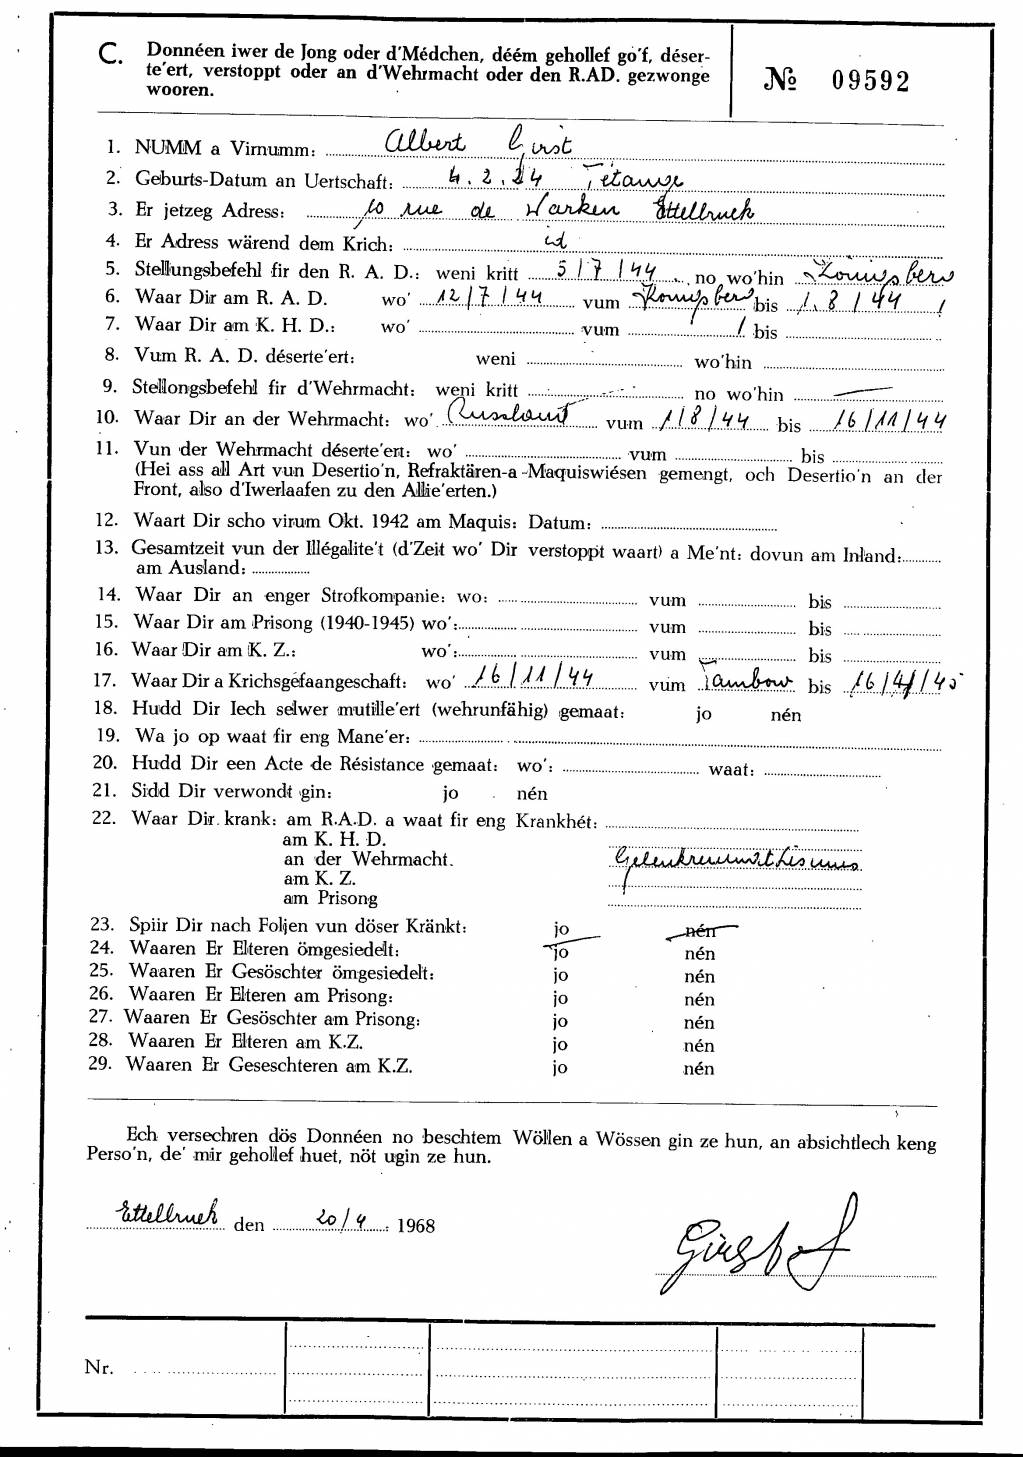 C. Donnéen iwer de Jong oder d'Médchen, déém gehollef go'f, déser-
te'ert, verstoppt oder an d'Wehrmacht oder den R.AD. gezwonge
wooren.
№ 09592
1. NUMM a Virnumm: Albert Girst
2. Geburts-Datum an Uertschaft: 4.2.24 Tétange
3. Er jetzeg Adress: 10 rue de Warken Ettelbruck
4. Er Adress wärend dem Krich: id
5. Stellungsbefehl fir den R. A. D.: weni kritt 5/7/44 no wo'hin Königsberg
6. Waar Dir am R. A. D. wo' 12/7/44 vum Königsberg bis 1.8/44
7. Waar Dir am K. H. D.: wo' vum / bis
8. Vum R. A. D. déserte'ert: weni wo'hin
9. Stellongsbefehl fir d'Wehrmacht: weni kritt no wo'hin —
10. Waar Dir an der Wehrmacht: wo' Russland vum 1/8/44 bis 16/11/44
11. Vun der Wehrmacht déserte'ert: wo' vum bis
(Hei ass all Art vun Desertio'n, Refraktären-a-Maquiswiésen gemengt, och Desertio'n an der
Front, also d'Iwerlaafen zu den Allie'erten.)
12. Waart Dir scho virum Okt. 1942 am Maquis: Datum:
13. Gesamtzeit vun der Illégalite't (d'Zeit wo' Dir verstoppt waart) a Me'nt: dovun am Inland:
am Ausland:
14. Waar Dir an enger Strofkompanie: wo: vum bis
15. Waar Dir am Prisong (1940-1945) wo': vum bis
16. Waar Dir am K. Z.: wo': vum bis
17. Waar Dir a Krichsgefaangeschaft: wo' 16/11/44 vum Tambow bis 16/4/45
18. Hudd Dir Iech selwer mutille'ert (wehrunfähig) gemaat: jo nén
19. Wa jo op waat fir eng Mane'er:
20. Hudd Dir een Acte de Résistance gemaat: wo': waat:
21. Sidd Dir verwondt gin: jo nén
22. Waar Dir krank: am R.A.D. a waat fir eng Krankhét:
am K. H. D.
an der Wehrmacht. Gelenkreumathismus
am K. Z.
am Prisong
23. Spiir Dir nach Foljen vun döser Kränkt: jo nén
24. Waaren Er Elteren ömgesiedelt: jo nén
25. Waaren Er Gesöschter ömgesiedelt: jo nén
26. Waaren Er Elteren am Prisong: jo nén
27. Waaren Er Gesöschter am Prisong: jo nén
28. Waaren Er Elteren am K.Z. jo nén
29. Waaren Er Geseschteren am K.Z. jo nén
Ech versechren dös Donnéen no beschtem Wöllen a Wössen gin ze hun, an absichtlech keng
Perso'n, de' mir gehollef huet, nöt ugin ze hun.
Ettelbruck den 20/4 1968
Girst
Nr.